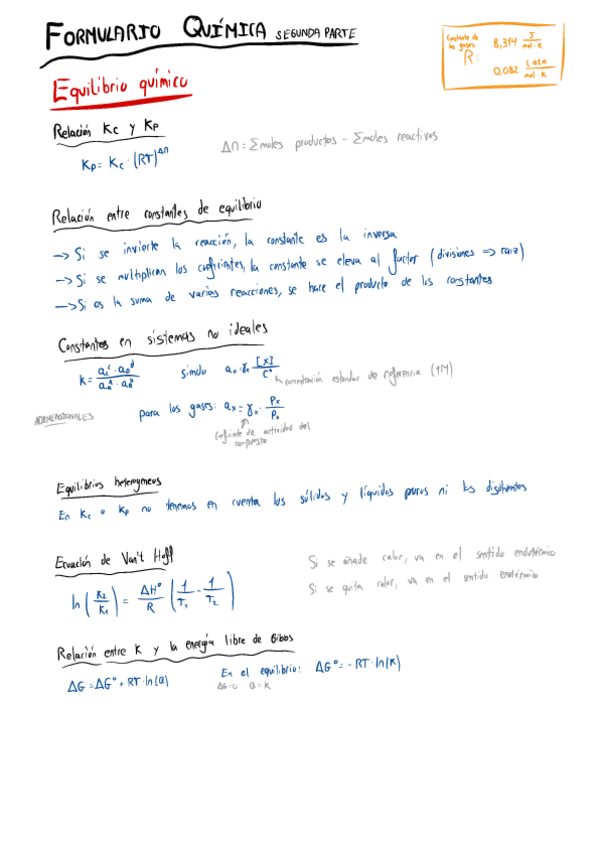 FORMULARIO QUÍMICA SEGUNDA PARTE
Constante de los gases R: 8,314 J/mol·K
0,082 l·atm/mol·K
Equilibrio químico
Relación Kc y Kp
Kp = Kc · (RT)^Δn
Δn = Σmoles productos - Σmoles reactivos
Relación entre constantes de equilibrio
—> Si se invierte la reacción, la constante es la inversa
—> Si se multiplican los coeficientes, la constante se eleva al factor (divisiones => raíz)
—> Si es la suma de varias reacciones, se hace el producto de las constantes
Constantes en sistemas no ideales
siendo
concentración estándar de referencia (1M)
ADIMENSIONALES
para los gases: aₓ = γₓ · Pₓ/P₀
Coeficiente de actividad del compuesto
Equilibrios heterogéneos
En Kc o Kp no tenemos en cuenta los sólidos y líquidos puros ni los disolventes
Ecuación de Van't Hoff
ln(K₂/K₁) = ΔH°/R (1/T₁ - 1/T₂)
Si se añade calor, va en el sentido endotérmico
Si se quita calor, va en el sentido exotérmico
Relación entre K y la energía libre de Gibbs
ΔG = ΔG° + RT·ln(Q)
En el equilibrio: ΔG° = -RT·ln(K)
ΔG=0 Q=K